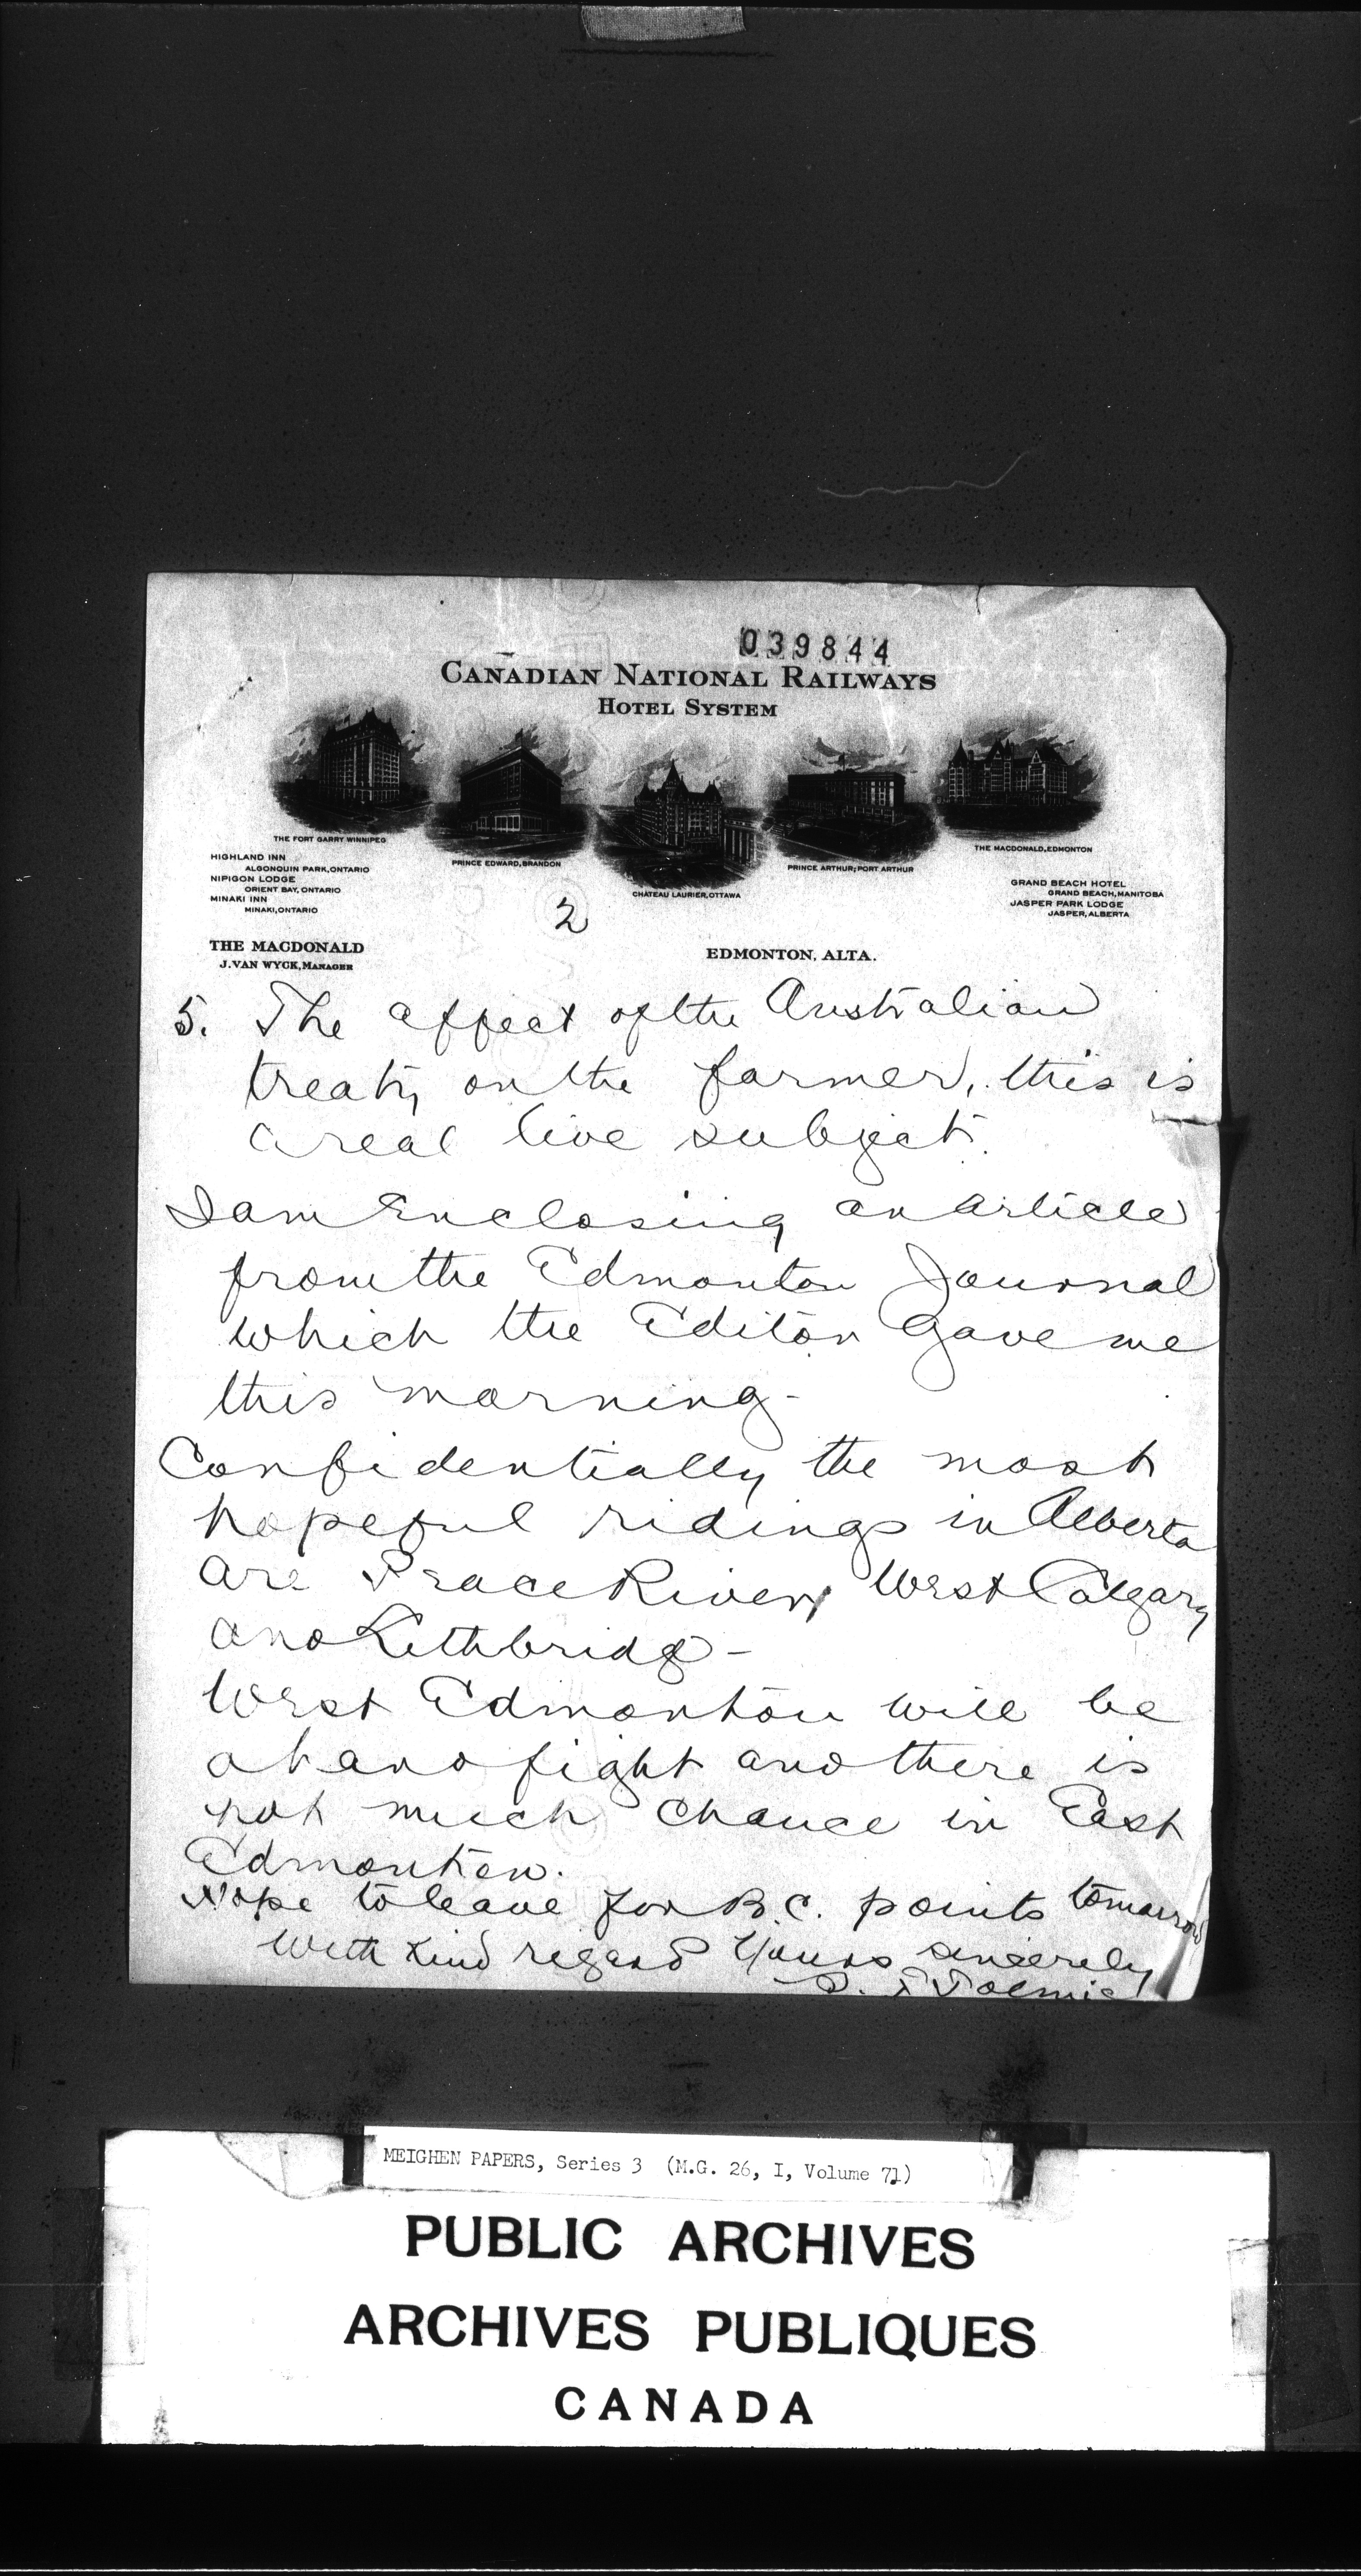 039844
CANADIAN NATIONAL RAILWAYS
HOTEL SYSTEM
THE FORT GARRY WINNIPEG
PRINCE EDWARD, BRANDON
CHATEAU LAURIER, OTTAWA
PRINCE ARTHUR, PORT ARTHUR
THE MACDONALD, EDMONTON
HIGHLAND INN
ALGONQUIN PARK, ONTARIO
NIPIGON LODGE
ORIENT BAY, ONTARIO
MINAKI INN
MINAKI, ONTARIO
GRAND BEACH HOTEL
GRAND BEACH, MANITOBA
JASPER PARK LODGE
JASPER, ALBERTA
2
THE MACDONALD
J. VAN WYCK, MANAGER
EDMONTON, ALTA.
5. The affect of the Australian
treaty on the farmer, this is
a real live subject.
I am Enclosing an article
from the Edmonton Journal
which the Editor gave me
this morning -
Confidentially the most
hopeful ridings in Alberta
are Peace River, West Calgary
and Lethbridge -
West Edmonton will be
a hard fight and there is
not much chance in East
Edmonton.
Hope to leave for B.C. points tomorrow
With kind regard Yours sincerely
S. F. Tolmie
MEIGHEN PAPERS, Series 3 (M.G. 26, I, Volume 71)
PUBLIC ARCHIVES
ARCHIVES PUBLIQUES
CANADA